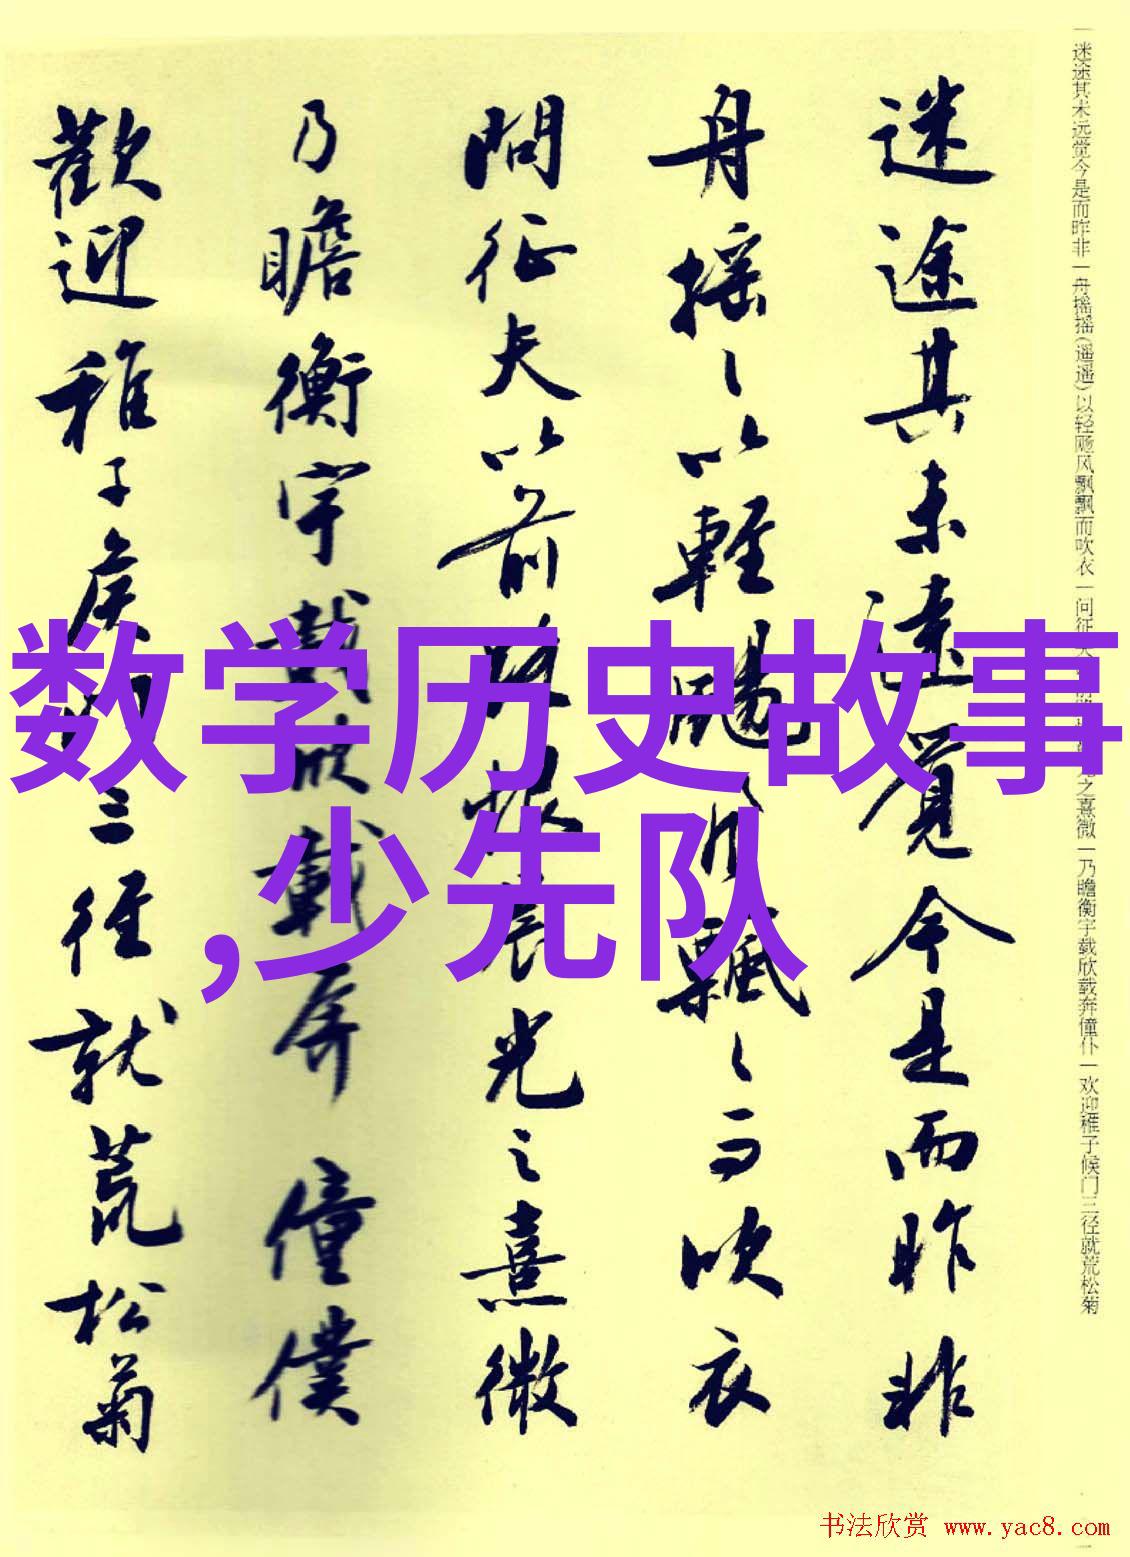 迷途其未远觉今是而昨非一舟摇摇(遥遥)以轻飏风飘飘而吹衣一问征
之熹微一乃瞻衡宇载欣载奔僮仆一欢迎稚子候门三径就荒松菊
迷途其未遠覺今是而昨非
舟摇〻以輕颺風飄〻而吹衣
問征夫以前路恨晨光之熹微
乃瞻衡宇載欣載奔僮僕
歡迎稚子候門三徑就荒松菊
数学历史故事
,少先队
书法欣赏 www.yac8.com